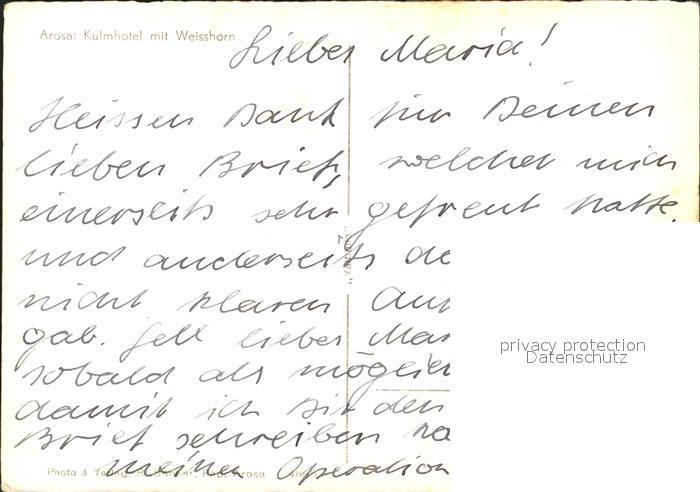 Arosa: Kulmhotel mit Weisshorn
Lieber Maria!
Heissen Dank für Deinen
lieben Brief, welcher mich
einerseits sehr gefreut hatte,
und anderseits de
nicht klaren Auf
gab. Gell lieber Mar
sobald als möglich
damit ich Dir den
Brief schreiben ka
meiner Operation
Photo & Verlag Arosa
privacy protection
Datenschutz